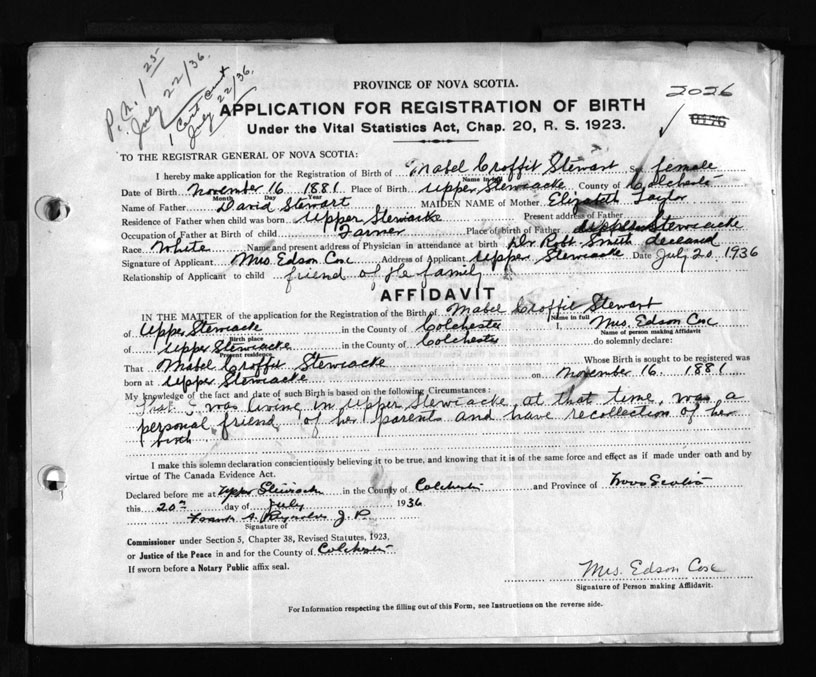 P.A. 1 25
July 22/36.
1 Cert Cert
July 22/36.
2026
PROVINCE OF NOVA SCOTIA.
APPLICATION FOR REGISTRATION OF BIRTH
Under the Vital Statistics Act, Chap. 20, R. S. 1923.
TO THE REGISTRAR GENERAL OF NOVA SCOTIA:
I hereby make application for the Registration of Birth of Mabel Croffit Stewart Sex female
Name in full
Date of Birth November 16 1881 Place of Birth Upper Stewiacke County of Colchester
Month Day Year
Name of Father David Stewart MAIDEN NAME of Mother Elizabeth Taylor
Residence of Father when child was born Upper Stewiacke Present address of Father
Occupation of Father at Birth of child Farmer Place of birth of Father Upper Stewiacke
Race White Name and present address of Physician in attendance at birth Dr. Robt. Smith deceased
Signature of Applicant Mrs. Edson Cox Address of Applicant Upper Stewiacke Date July 20 1936
Relationship of Applicant to child friend of the family
AFFIDAVIT
IN THE MATTER of the application for the Registration of the Birth of Mabel Croffit Stewart
Name in full
of Upper Stewiacke in the County of Colchester I, Mrs. Edson Cox
Birth place Name of person making Affidavit
of Upper Stewiacke in the County of Colchester do solemnly declare:
Present residence
That Mabel Croffit Stewiacke Whose Birth is sought to be registered was
born at Upper Stewiacke on November 16. 1881
My knowledge of the fact and date of such Birth is based on the following Circumstances:
That I was living in Upper Stewiacke at that time, was a
personal friend of her parents and have recollection of her
birth.
I make this solemn declaration conscientiously believing it to be true, and knowing that it is of the same force and effect as if made under oath and by
virtue of The Canada Evidence Act.
Declared before me at Upper Stewiacke in the County of Colchester and Province of Nova Scotia
this 20th day of July 1936
Reynolds J. P.
Signature of
Commissioner under Section 5, Chapter 38, Revised Statutes, 1923,
or Justice of the Peace in and for the County of Colchester
If sworn before a Notary Public affix seal.
Mrs. Edson Cox
Signature of Person making Affidavit.
For Information respecting the filling out of this Form, see Instructions on the reverse side.